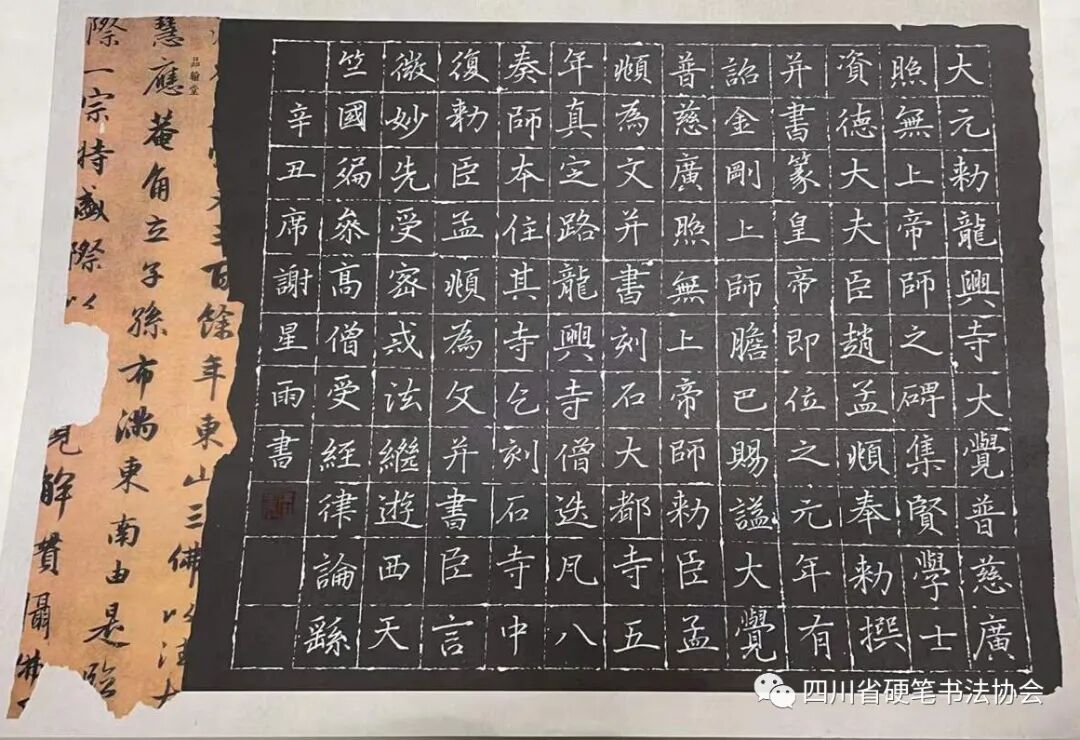 大元勅龍興寺大覺普慈廣
照無上帝師之碑集賢學士
資徳大夫臣趙孟頫奉勅撰
并書篆皇帝即位之元年有
詔金剛上師膽巴賜謚大覺
普慈廣照無上帝師勅臣孟
頫為文并書刻石大都寺五
年真定路龍興寺僧迭凡八
奏師本住其寺乞刻石寺中
復勅臣孟頫為文并書臣言
微妙先受密戒法繼遊西天
竺國徧叅高僧受經律論繇
辛丑席謝星雨書
品翰堂
百餘年東山三佛以法
慧應菴角立子孫布滿東南由是臨
際一宗特盛際以
見解貫攝
四川省硬笔书法协会